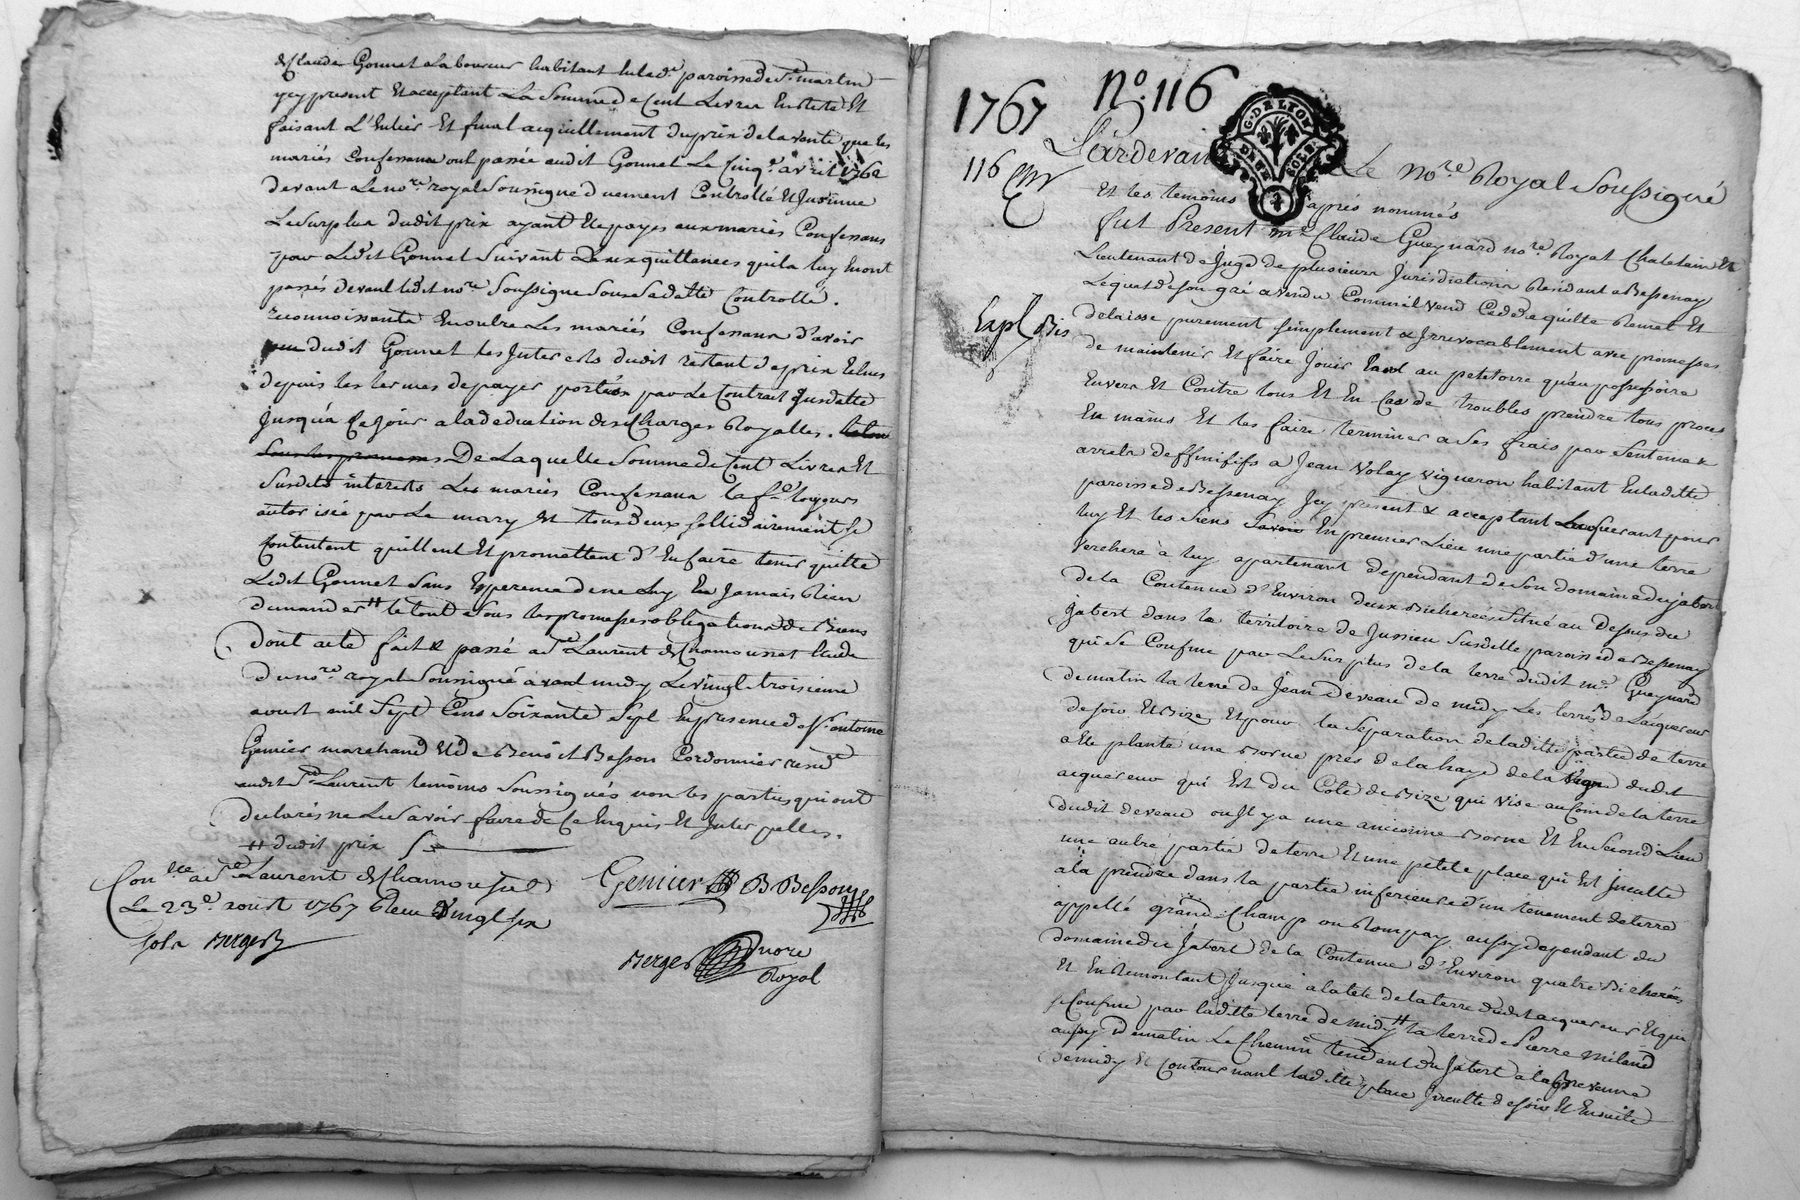 de Claude Gonnet Laboureur habitant paroisse de St martin
yey present et acceptant La Somme de Cent Livres En reste Et
faisant L'Entier Et final acquittement du prix de la vente que les
mariés Confessans ont passée audit Gonnet Le Cinq e. avril 1762
devant Le no.re royal Soussigné duement Controllé Et Insinué
Le Surplus dudit prix ayant Eté payés aux mariés Confessans
par Ledit Gonnet Suivant Deux quittances quils luy En ont
passés devant ledit no.re Soussigné Sous Sa datte Controllé.
reconnoissants En outre Les mariés Confessans d'avoir
eu dudit Gonnet les Interests dudit restant de prix Echus
depuis les termes de payer portés par Le Contrat Susdatté
jusqu'à Ce jour a la deduction des Charges Royalles.
De Laquelle Somme de Cent Livres Et
Susdits interests Les mariés Confessans la f.e toujours
autorisée par Le mary Et tous deux sollidairement Se
Contentent quittent Et promettent d'En faire tenir quitte
Ledit Gonnet Sans Esperence de ne Luy En Jamais Rien
demander # le tout Sous les promesses obligations de Biens
Dont acte fait & passé a St Laurent de Chamousset Etude
du no.re royal Soussigné avant midy Le vingt troisieme
aoust mil Sept Cens Soixante Sept En presence de Sr. antoine
Genier marchand Et de Benoit Besson Cordonnier resid.
audit St Laurent temoins Soussignés non les parties qui ont
declarés ne Le Savoir faire de Ce Enquis Et Interpellés.
# dudit prix
Con.llé a St Laurent de Chamousset
Le 23e. aoust 1767 Recu Vingt six
sols Berger
Genier B Besson
Berger nore
Royal
1767
No. 116
116
G. DE LYON
DEUX SOLS
Pardevant Le no.re Royal Soussigné
Et les temoins cy après nommés
fut Present m.e Claude Gueynard no.re Royal Chatelain Et
Lieutenant de Juge de plusieurs Jurisdictions Residant a Bessenay
Lequel de Son gré a vendu Comme il vend Cedde quitte Remet Et
Expl. Bis
delaisse purement simplement & Irrevocablement avec promesses
de maintenir Et faire Jouir tant au petitoire qu'au possessoire
Envers Et Contre tous Et En Cas de troubles prendre tous proces
En mains Et les faire terminer a Ses frais par Sentence &
arrets deffinitifs a Jean Volay vigneron habitant En laditte
paroisse de Bessenay Jcy present & acceptant acquerant pour
luy Et les Siens Savoir En premier Lieu une partie d'une terre
verchere à luy apartenant dependant de Son domaine du jabert
de la Contenue d'Environ deux Bicherées Situé au Dessus du
jabert dans le territoire de Jussieu Susditte paroisse de Bessenay
qui Se Confine par Le Surplus de la terre dudit m.e Gueynard
de matin la terre de Jean Deveau de midy Les terres de Lacquereur
de soir Et Bize Et pour la Separation de laditte partie de terre
a Eté planté une Borne près de la haye de la vigne dudit
acquereur qui Est du Coté de Bize qui vise au Coin de la terre
dudit deveau ou Il y a une ancienne Borne Et En Second Lieu
une autre partie de terre Et une petite place qui Est Jnculte
à la prendre dans la partie inferieure d'un tenement de terre
appellé grand Champ ou Rompay aussy dependant du
domaine du Jabert de la Contenue d'Environ quatre Bicherées
Et En Remontant Jusque a la tete de la terre dudit acquereur Et qui
se Confine par laditte terre de midy # la terre de Pierre Miland
aussy De matin Le Chemin tendant du Jabert a la Brevenne
de midy Et Contournant laditte place Jnculte de soir Et Ensuite